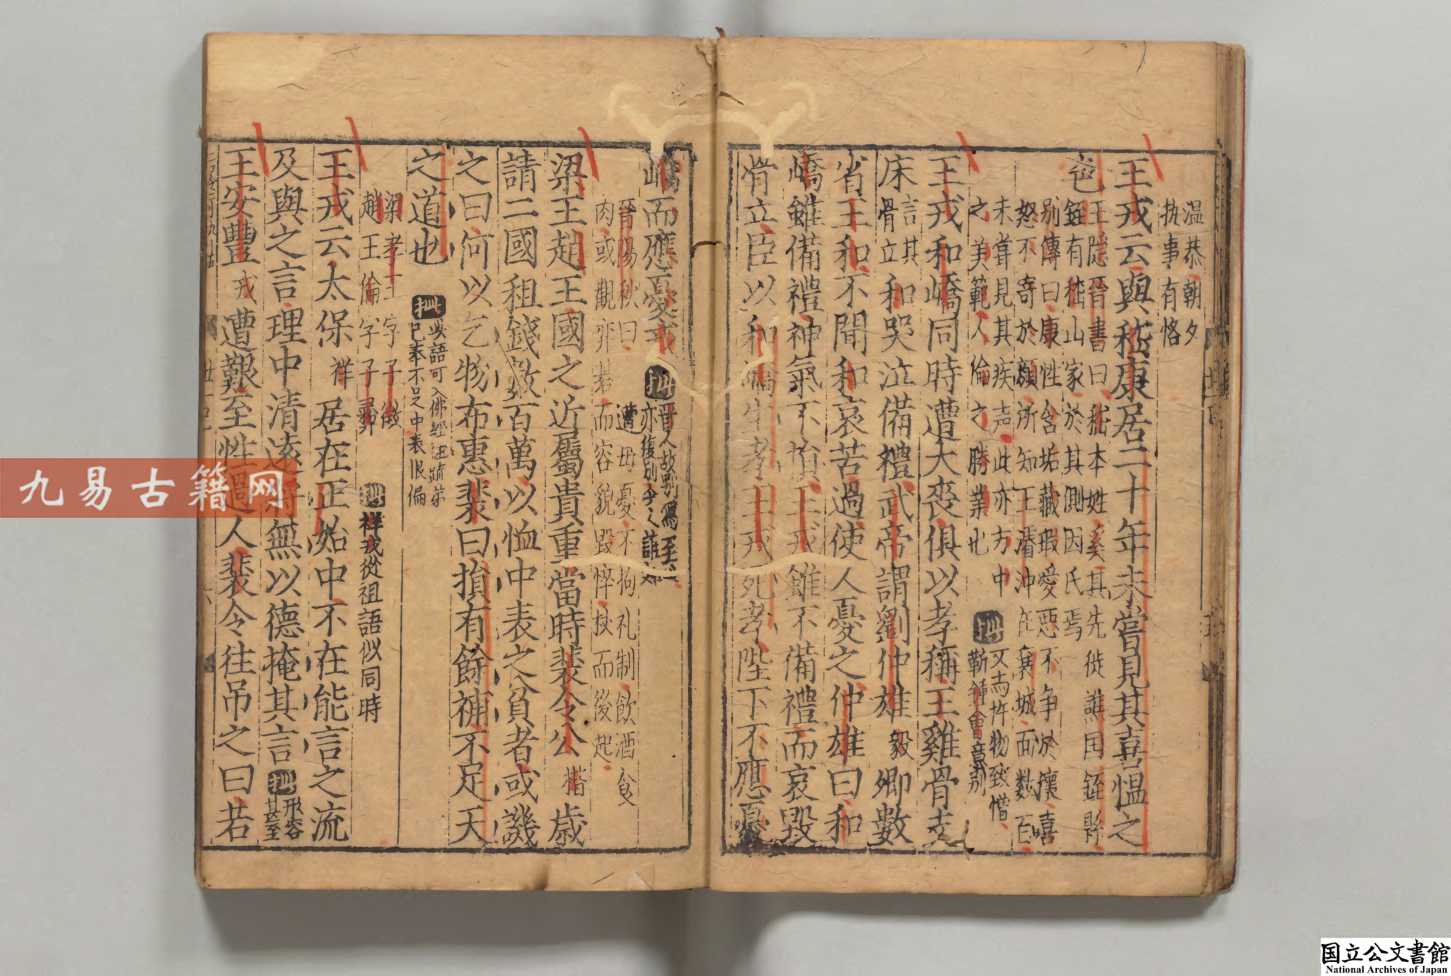 温恭朝夕
执事有恪
王戎云與嵇康居二十年未嘗見其喜愠之
色
王隱晉書曰嵇本姓奚其先徙譙国銍縣
銍有嵇山家於其側因氏焉
別傳曰康性含垢藏瑕愛惡不争於懷喜
怒不寄於顔所知王濬沖在襄城面數百
未嘗見其疾声此亦方中
之美範人倫之勝業也
王戎和嶠同時遭大喪俱以孝稱王雞骨支
床
言其
骨立
和哭泣備禮武帝謂劉仲雄
毅
卿數
省王和不聞和哀苦過使人憂之仲雄曰和
嶠雖備禮神氣不損王戎雖不備禮而哀毀
骨立臣以和嶠生孝王戎死孝陛下不應憂
嶠而應憂戎
晉陽秋曰
遭母憂不拘礼制飲酒食
肉或觀弈棊而容貌毀悴杖而後起
梁王趙王國之近屬貴重當時裴令公
楷
歳
請二國租錢數百萬以恤中表之貧者或譏
之曰何以乞物布惠裴曰損有餘補不足天
之道也
此語可入佛經注疏第
已奉不足中表恨偏
梁孝王字子徽
趙王倫字子彛
王戎云太保
祥
居在正始中不在能言之流
祥戎從祖語似同時
及與之言理中清遠將無以德掩其言
形容
甚至
王安豐
戎
遭艱至性過人裴令往吊之曰若
九易古籍网
国立公文書館
National Archives of Japan